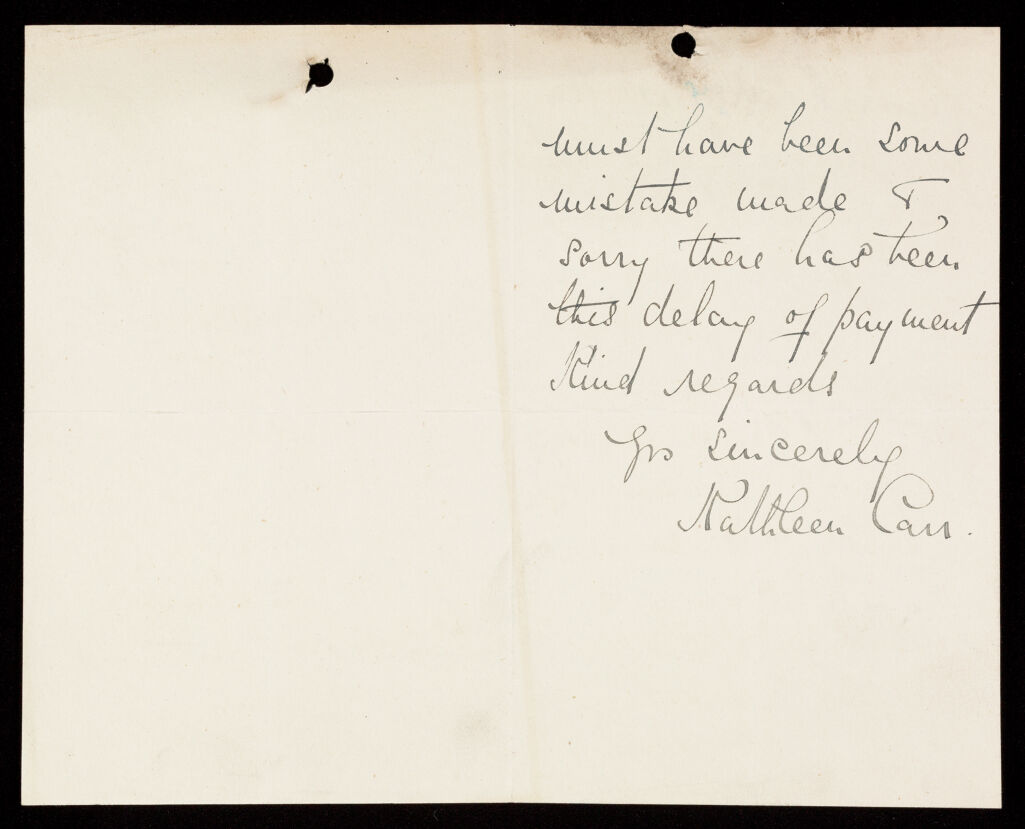 must have been some
mistake made &
sorry there has been
this delay of payment
Kind regards
Yrs sincerely
Kathleen Carr.